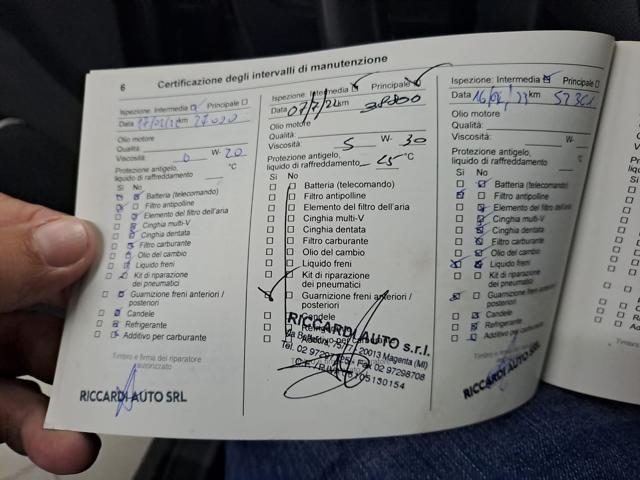 6 Certificazione degli intervalli di manutenzione
Ispezione: Intermedia Principale
Data 27020
Olio motore
Qualità
Viscosità: 0 W- 20
Protezione antigelo,
liquido di raffreddamento °C
Sì No
Batteria (telecomando)
Filtro antipolline
Elemento del filtro dell'aria
Cinghia multi-V
Cinghia dentata
Filtro carburante
Olio del cambio
Liquido freni
Kit di riparazione
dei pneumatici
Guarnizione freni anteriori /
posteriori
Candele
Refrigerante
Additivo per carburante
Timbro e firma del riparatore
autorizzato
RICCARDI AUTO SRL
Ispezione: Intermedia Principale
Data 07/7/22 km 38800
Olio motore
Qualità:
Viscosità: 5 W- 30
Protezione antigelo,
liquido di raffreddamento °C
Sì No
Batteria (telecomando)
Filtro antipolline
Elemento del filtro dell'aria
Cinghia multi-V
Cinghia dentata
Filtro carburante
Olio del cambio
Liquido freni
Kit di riparazione
dei pneumatici
Guarnizione freni anteriori /
posteriori
Candele
RICCARDI AUTO s.r.l.
20013 Magenta (MI)
Fax 02 97298708
Ispezione: Intermedia Principale
Data km
Olio motore
Qualità:
Viscosità: W-
Protezione antigelo,
liquido di raffreddamento °C
Sì No
Batteria (telecomando)
Filtro antipolline
Elemento del filtro dell'aria
Cinghia multi-V
Cinghia dentata
Filtro carburante
Olio del cambio
Liquido freni
Kit di riparazione
dei pneumatici
Guarnizione freni anteriori /
posteriori
Candele
Refrigerante
Additivo per carburante
Timbro e firma del riparatore
autorizzato
RICCARDI AUTO SRL